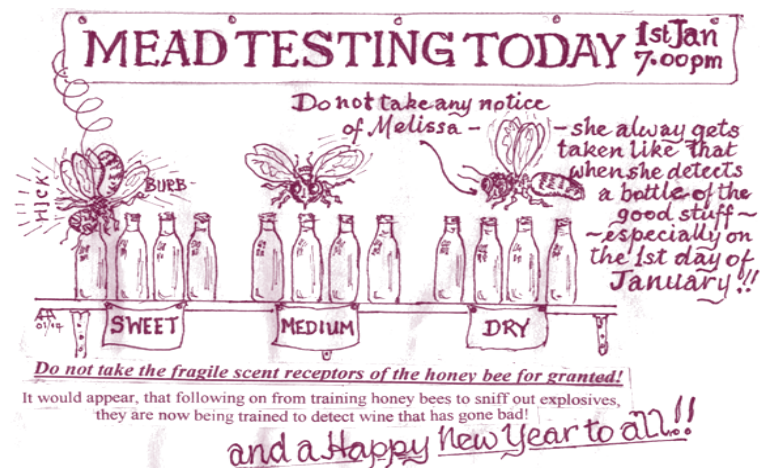 MEAD TESTING TODAY 1st Jan
7.00pm
Do not take any notice
of Melissa -
- she alway gets
taken like that
when she detects
a bottle of the
good stuff ~
~ especially on
the 1st day of
January!!
HICK
BURB
SWEET
MEDIUM
DRY
Do not take the fragile scent receptors of the honey bee for granted!
It would appear, that following on from training honey bees to sniff out explosives,
they are now being trained to detect wine that has gone bad!
and a Happy New Year to all!!